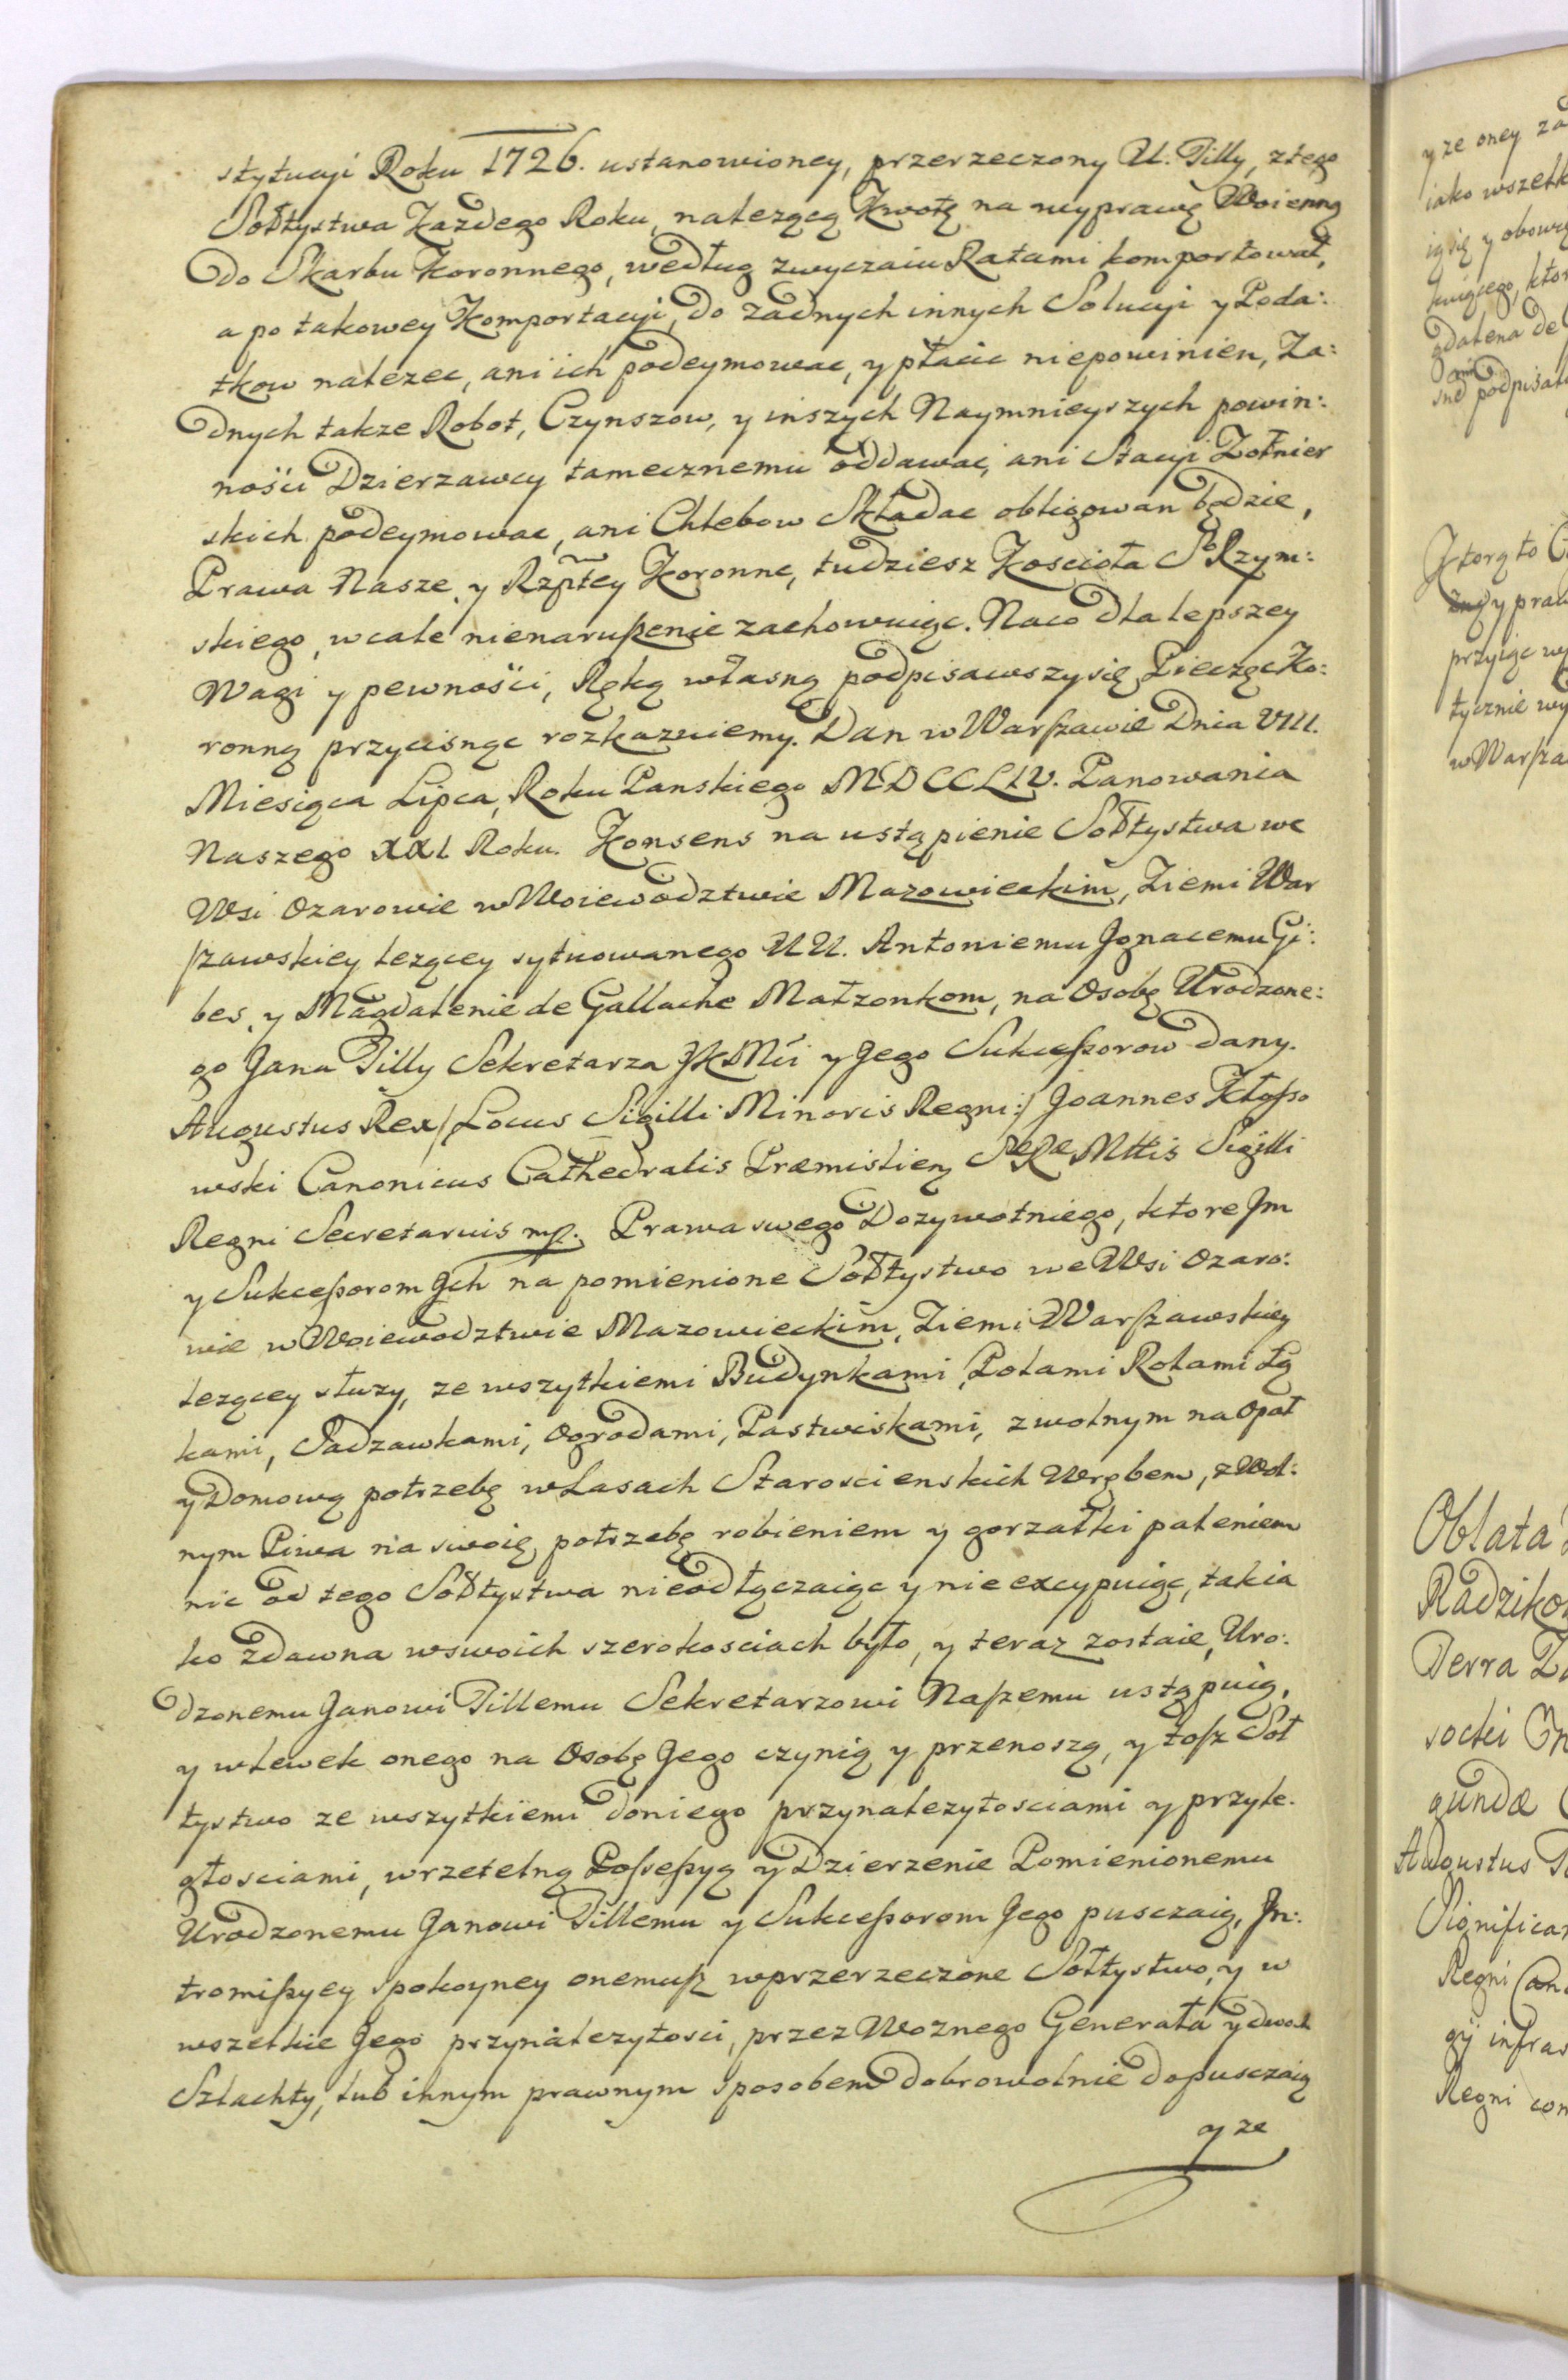 stytucyi Roku 1726. ustanowioney, przerzeczony U. Tilly, ztego
Sołtystwa Kazdego Roku, nalezącą Kwotę na wyprawę Woienną
do Skarbu Koronnego, według zwyczaiu Ratami komportował,
a po takowey Komportacyi, do zadnych innych Solucyi y Poda:
tkow nalezec, ani ich podeymowac, y płacic niepowinien, Za:
dnych takze Robot, Czynszow, y inszych Naymnieyszych powin:
nosci Dzierzawcy tamecznemu oddawac, ani Stacyi Zołnier
skich podeymowac, ani Chlebow Składac obligowan będzie,
Prawa Nasze y Rzptey Koronne, tudziesz Koscioła S° Rzym:
skiego, wcale nienarußenie zachowuiąc. Naco dla lepszey
Wagi y pewnosci, Ręką własną podpisawszy się Pieczęc Ko:
ronną przycisnąc rozkazuiemy. Dan w Warßawie Dnia VIII.
Miesiąca Lipca, Roku Panskiego MDCCLIV. Panowania
Naszego XXI Roku. Konsens na ustąpienie Sołtystwa we
Wsi Ozarowie w Woiewodztwie Mazowieckim, Ziemi War
ßawskiey lezącey sytuowanego UU. Antoniemu Jgnacemu Gi:
bes, y Magdalenie de Gallache Małzonkom, na Osobę Urodzone:
go Jana Tilly Sekretarza JKMci y Jego Sukceßorow dany.
Augustus Rex /Locus Sigilli Minoris Regni:/ Joannes Kłoßo
wski Canonicus Cathedralis Præmislien SæRæMttis Sigilli
Regni Secretarius mp. Prawa swego Dozywotniego, ktore Jm
y Sukceßorom Jch na pomienione Sołtystwo we Wsi Ozaro:
wie w Woiewodztwie Mazowieckim, Ziemi Warßawskiey
lezącey słuzy, ze wszytkiemi Budynkami, Polami Rolami Łą
kami, Sadzawkami, Ogrodami, Pastwiskami, zwolnym na Opał
y Domową potrzebę w Lasach Staroscienskich Wrębem, z Wol:
nym Piwa na swoię potrzebę robieniem y gorzałki paleniem
nic od tego Sołtystwa nieodłączaiąc y nie excypuiąc, takia
ko zdawna wswoich szerokosciach było, y teraz zostaie, Uro:
dzonemu Janowi Tillemu Sekretarzowi Naßemu ustąpuią,
y wlewek onego na Osobę Jego czynią y przenoszą, y toßz Soł
tystwo ze wszytkiemi doniego przynalezytosciami y przyle.
głosciami, wrzetelną Poßeßyą y Dzierzenie Pomienionemu
Urodzonemu Janowi Tillemu y Sukceßorom Jego pusczaią, Jn:
tromißyey spokoyney onemußz wprzerzeczone Sołtystwo, y w
wszelkie Jego przynalezytosci, przez Woznego Generała y dwoch
Szlachty, lub innym prawnym sposobem dobrowolnie dopusczaią
y ze

y ze oney za
iako wszelk
ią się y obowią
kuiącego, ktor
gdalena de
podpisał
Ktorą to
y praw
przyiąc wp
tycznie wy
w Warßa
Oblata
Radziko
Terra
socki
gundæ
Augustus
Significam
Regni Can
gÿ infras
Regni con